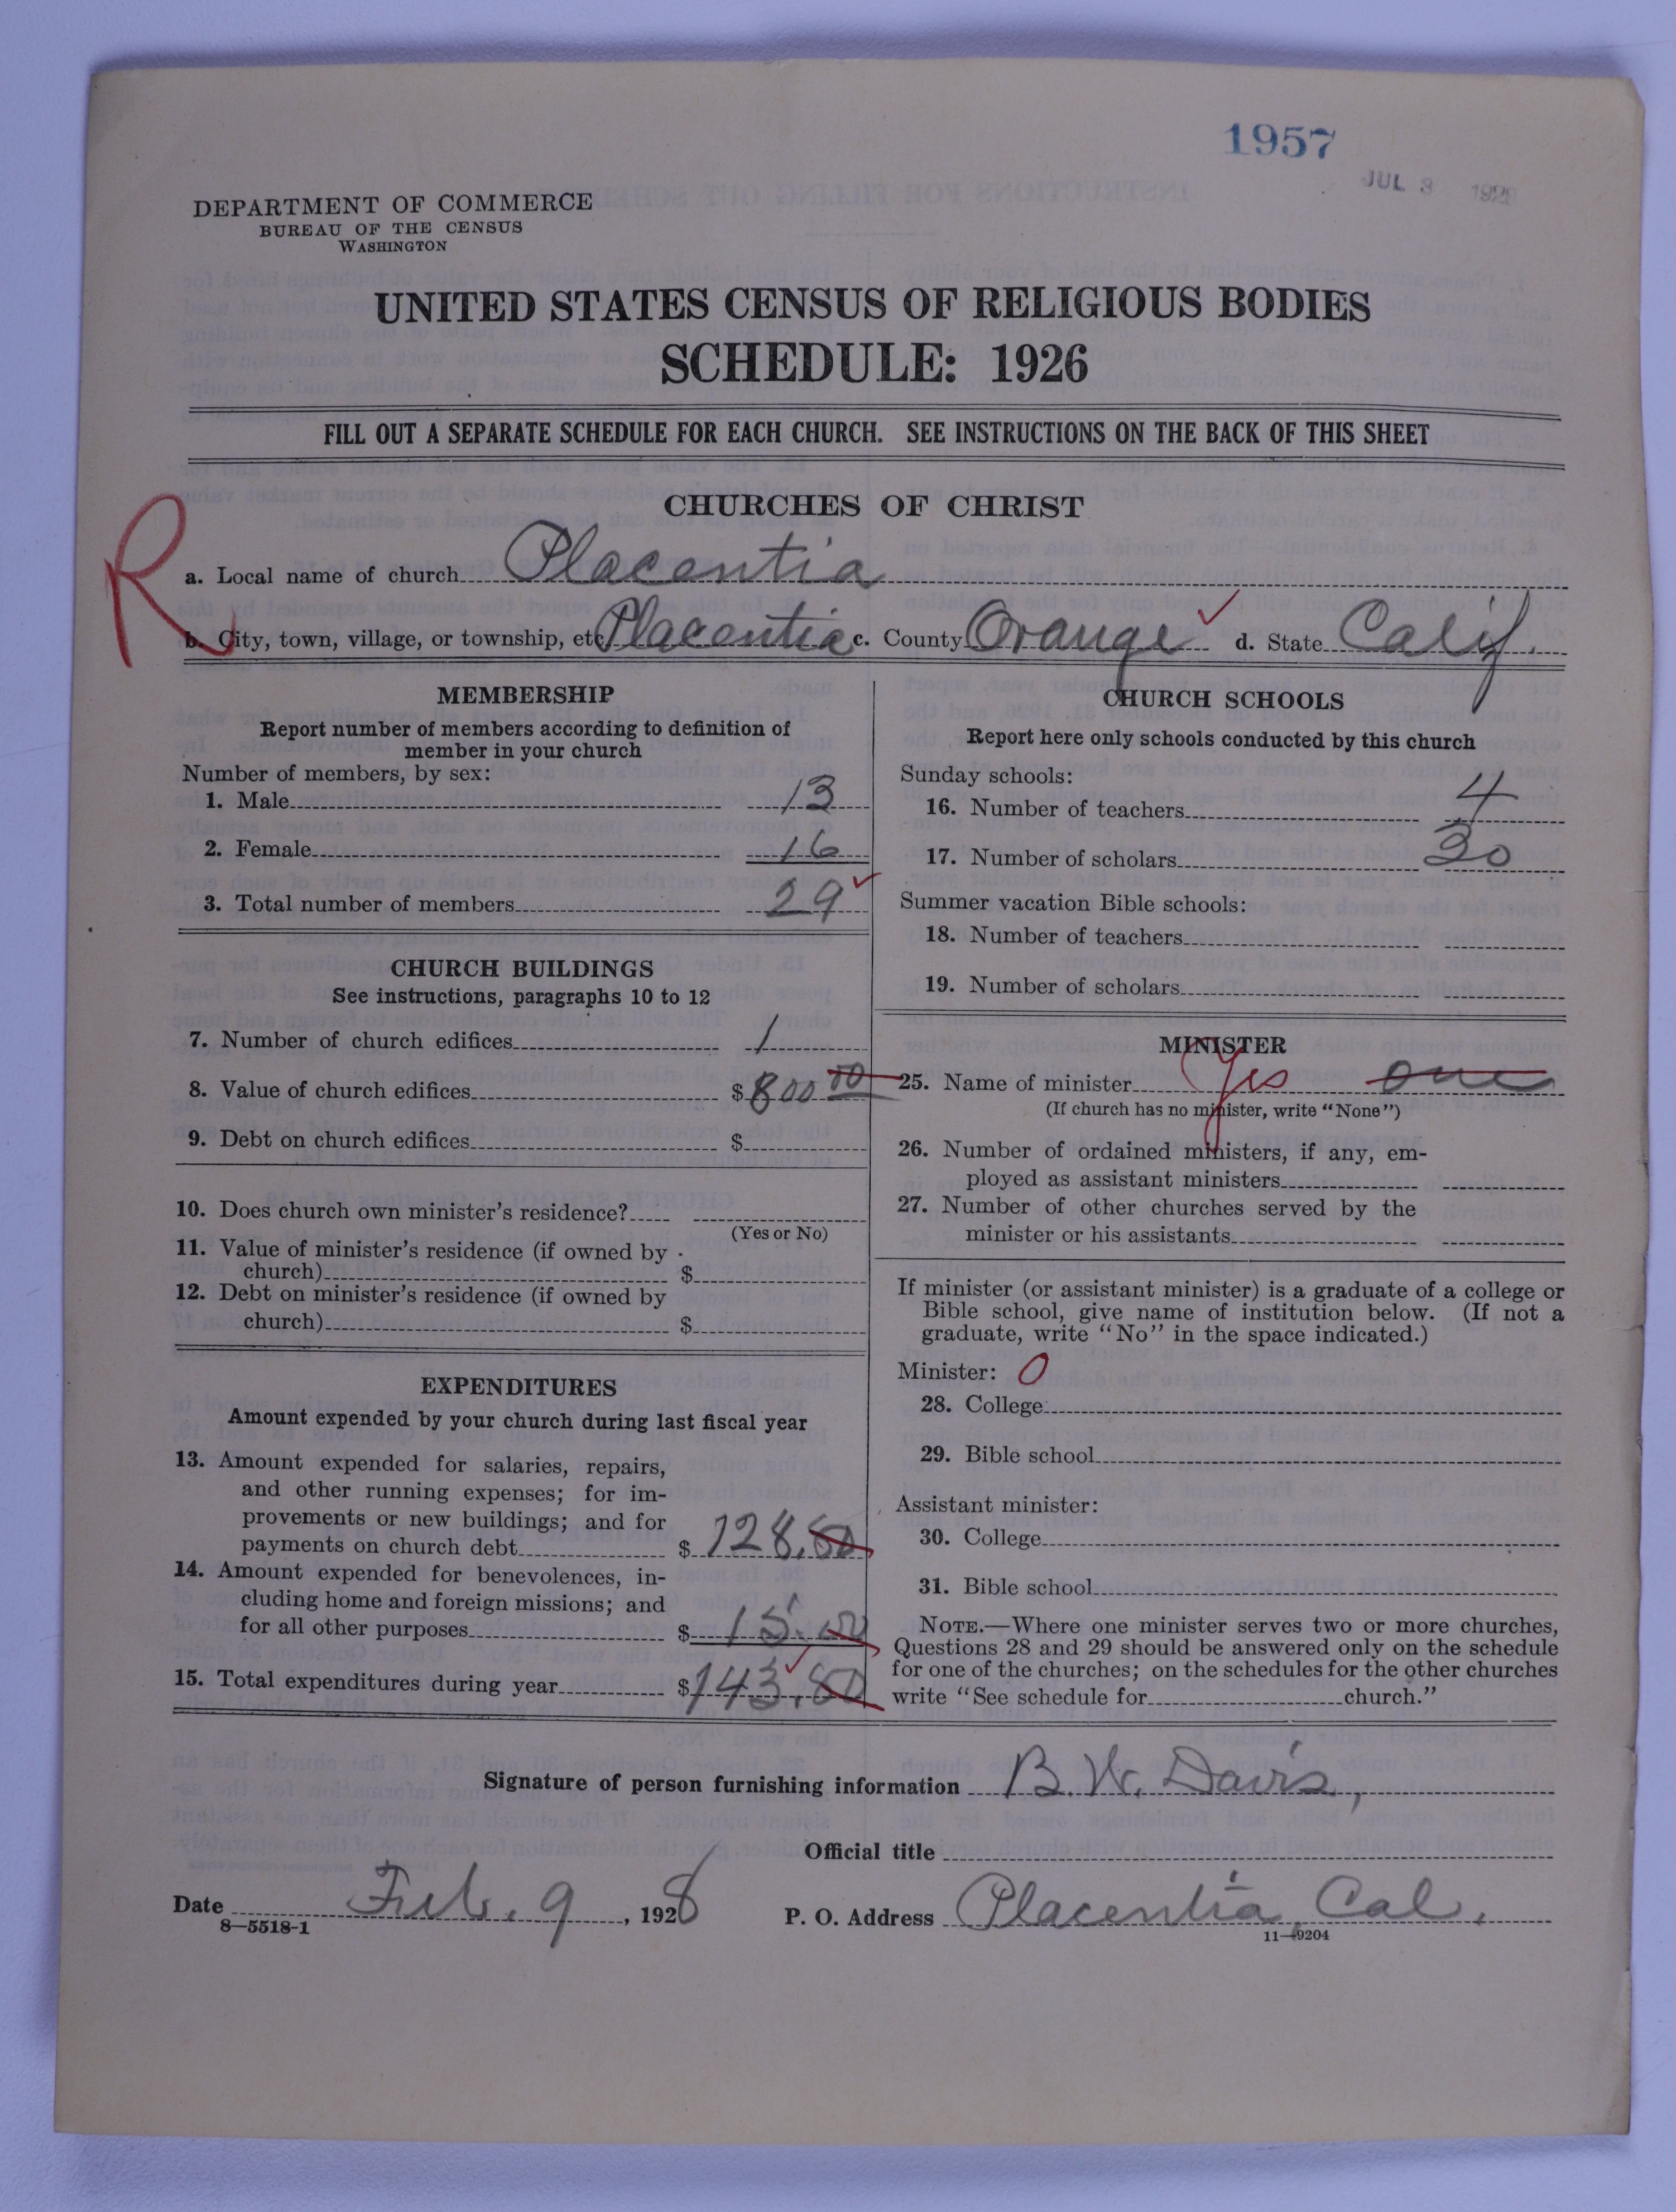 1957
JUL 3 192
DEPARTMENT OF COMMERCE
BUREAU OF THE CENSUS
WASHINGTON
UNITED STATES CENSUS OF RELIGIOUS BODIES
SCHEDULE: 1926
FILL OUT A SEPARATE SCHEDULE FOR EACH CHURCH. SEE INSTRUCTIONS ON THE BACK OF THIS SHEET
CHURCHES OF CHRIST
R
a. Local name of church Placentia
b. City, town, village, or township, etc. Placentia c. County Orange ✓ d. State Calif.
MEMBERSHIP
Report number of members according to definition of
member in your church
Number of members, by sex:
1. Male 13
2. Female 16
3. Total number of members 29 ✓
CHURCH BUILDINGS
See instructions, paragraphs 10 to 12
7. Number of church edifices 1
8. Value of church edifices $800 00
9. Debt on church edifices $
10. Does church own minister's residence?
(Yes or No)
11. Value of minister's residence (if owned by
church) $
12. Debt on minister's residence (if owned by
church) $
EXPENDITURES
Amount expended by your church during last fiscal year
13. Amount expended for salaries, repairs,
and other running expenses; for im-
provements or new buildings; and for
payments on church debt $ 128.50
14. Amount expended for benevolences, in-
cluding home and foreign missions; and
for all other purposes $ 15.00
15. Total expenditures during year $143.50 ✓
CHURCH SCHOOLS
Report here only schools conducted by this church
Sunday schools:
16. Number of teachers 4
17. Number of scholars 30
Summer vacation Bible schools:
18. Number of teachers
19. Number of scholars
MINISTER
25. Name of minister Yes one
(If church has no minister, write "None")
26. Number of ordained ministers, if any, em-
ployed as assistant ministers
27. Number of other churches served by the
minister or his assistants
If minister (or assistant minister) is a graduate of a college or
Bible school, give name of institution below. (If not a
graduate, write "No" in the space indicated.)
Minister: 0
28. College
29. Bible school
Assistant minister:
30. College
31. Bible school
NOTE.—Where one minister serves two or more churches,
Questions 28 and 29 should be answered only on the schedule
for one of the churches; on the schedules for the other churches
write "See schedule for church."
Signature of person furnishing information B. W. Davis,
Official title
Date Feb. 9, 1928 P. O. Address Placentia, Cal.
8—5518-1
11—9204